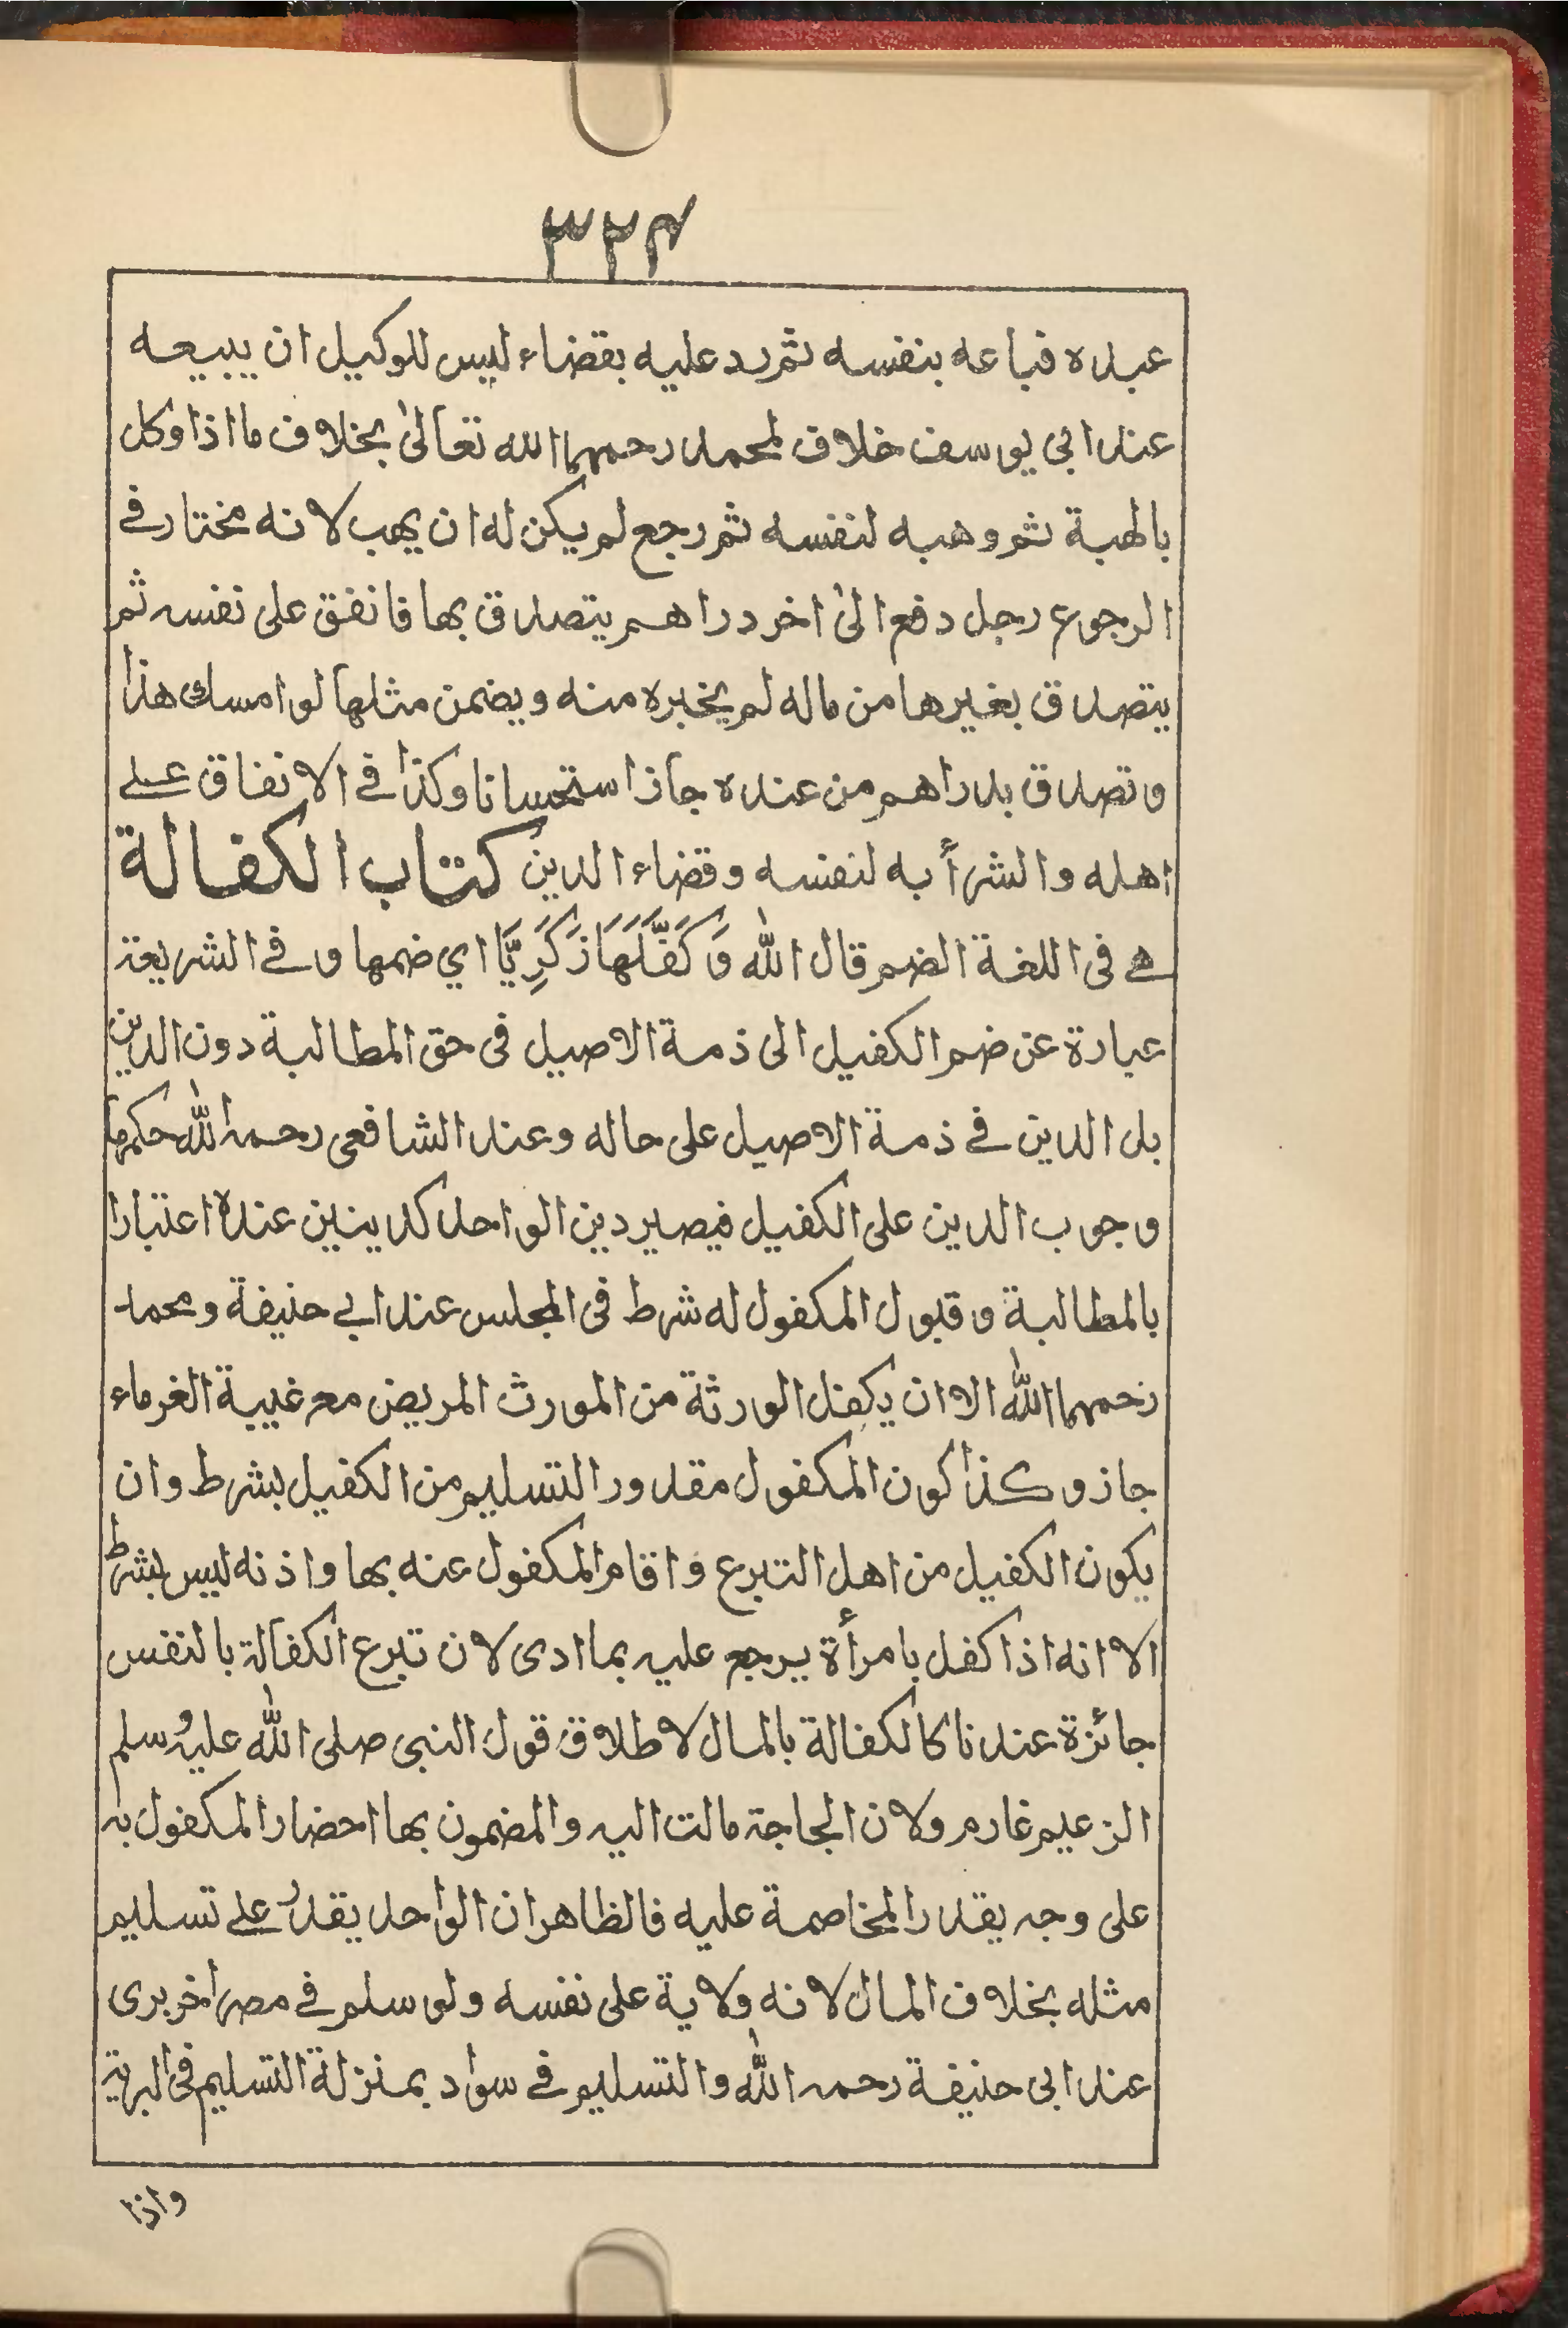 ٣٢٤
عبده فباعه بنفسه ثم رد عليه بقضاء ليس للوكيل ان يبيعه
عند ابي يوسف خلاف لمحمد رحمهما الله تعالىٰ بخلاف ما اذا وكل
بالهبة ثم وهبه لنفسه ثم رجع لم يكن له ان يهب لانه مختار في
الرجوع رجل دفع الىٰ اخر دراهم يتصدق بها فانفق على نفسه ثم
يتصدق بغيرها من ماله لم يخبره منه ويضمن مثلها لو امسك هذا
وتصدق بدراهم من عنده جاز استحسانا وكذا في الانفاق على
اهله والشرأ به لنفسه وقضاء الدين كتاب الكفالة
هي فى اللغة الضم قال الله وَكَفَّلَهَا زَكَرِيَّا اي ضمها وفي الشريعة
عبارة عن ضم الكفيل الى ذمة الاصيل فى حق المطالبة دون الدين
بل الدين في ذمة الاصيل على حاله وعند الشافعى رحمه الله حكمها
وجوب الدين على الكفيل فيصير دين الواحد كدينين عنده اعتبارا
بالمطالبة وقبول المكفول له شرط فى المجلس عند ابي حنيفة ومحمد
رحمهما الله الا ان يكفل الورثة من المورث المريض مع غيبة الغرماء
جاز وكذا كون المكفول مقدور التسليم من الكفيل بشرط وان
يكون الكفيل من اهل التبرع واقام المكفول عنه بها واذنه ليس بشرط
الا انه اذا كفل بامرأة يرجع عليه بما ادى لان تبرع الكفالة بالنفس
جائزة عندنا كالكفالة بالمال لاطلاق قول النبى صلى الله عليه وسلم
الزعيم غارم ولان الحاجة مالت اليه والمضمون بها احضار المكفول به
على وجه يقدر المخاصمة عليه فالظاهر ان الواحد يقدر على تسليم
مثله بخلاف المال لانه ولاية على نفسه ولو سلم في مصر اخر برى
عند ابى حنيفة رحمه الله والتسليم في سواد بمنزلة التسليم فى البرية
واذا